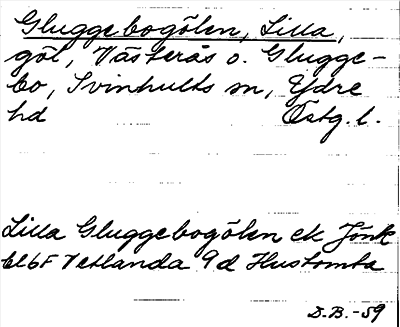 Gluggebogölen, Lilla,
göl, Västerås o. Glugge-
bo, Svinhults sn, Ydre
hd Östg. l.
Lilla Gluggebogölen ek Jönk
bl6F Vetlanda 9d Hustomta
D.B.-59